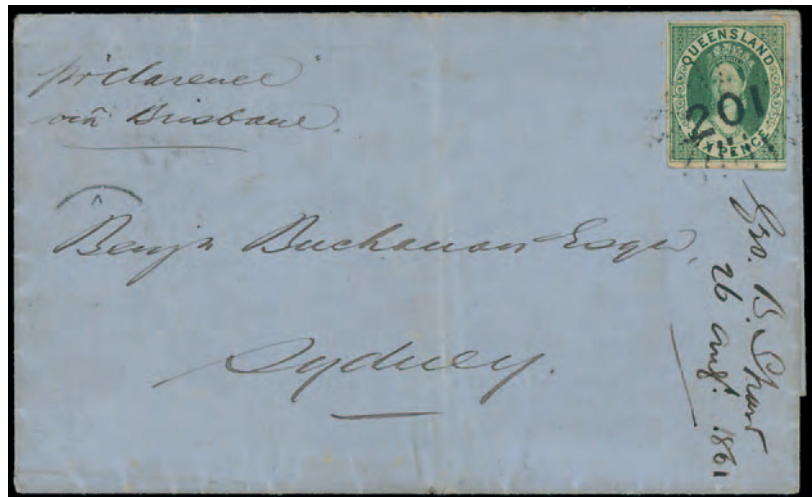 pr "Clarence"
via Brisbane.
QUEENSLAND
201
SIXPENCE
Benjn Buchanan Esqr,
Sydney.
Geo. B. Shaw
26 Augt. 1861